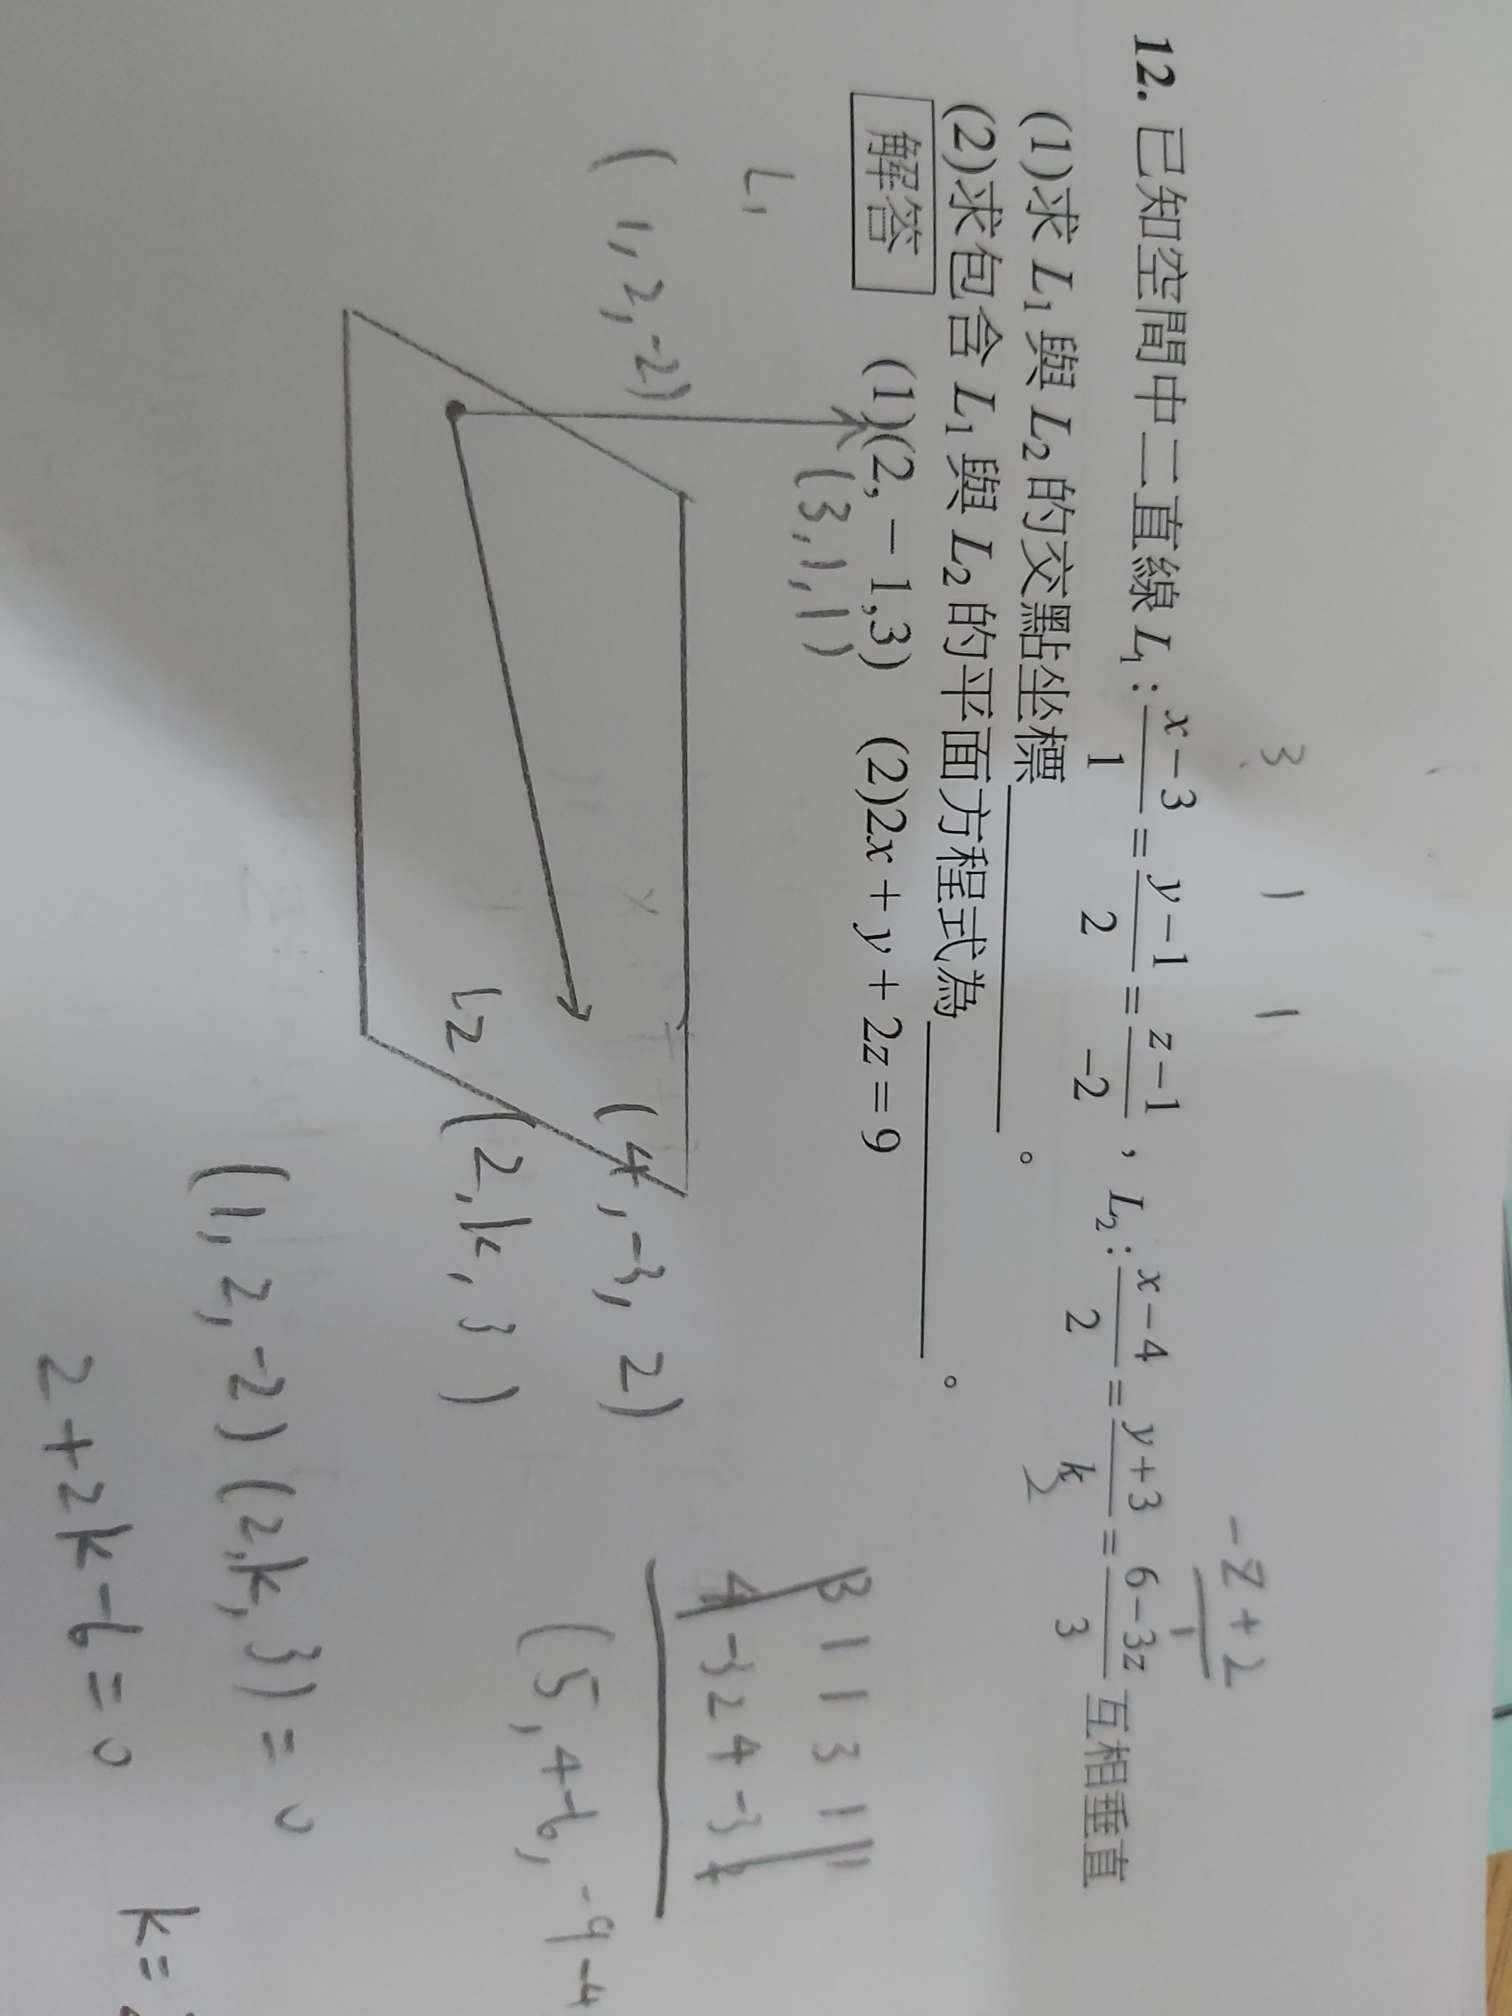 3 1 1
-z+2
1
12. 已知空間中二直線 L₁ : (x-3)/1 = (y-1)/2 = (z-1)/-2 , L₂ : (x-4)/2 = (y+3)/k = (6-3z)/3 互相垂直
2
(1)求 L₁ 與 L₂ 的交點坐標____。
(2)求包含 L₁ 與 L₂ 的平面方程式為____。
解答 (1)(2, -1,3) (2)2x + y + 2z = 9
(3,1,1)
L₁
(1,2,-2)
(4,-3,2)
L2 (2,k,3)
3 1 1 3 1 1
4 -3 2 4 -3
(5,4-6,-9-4
(1,2,-2)(2,k,3)=0
2+2k-6=0
k=